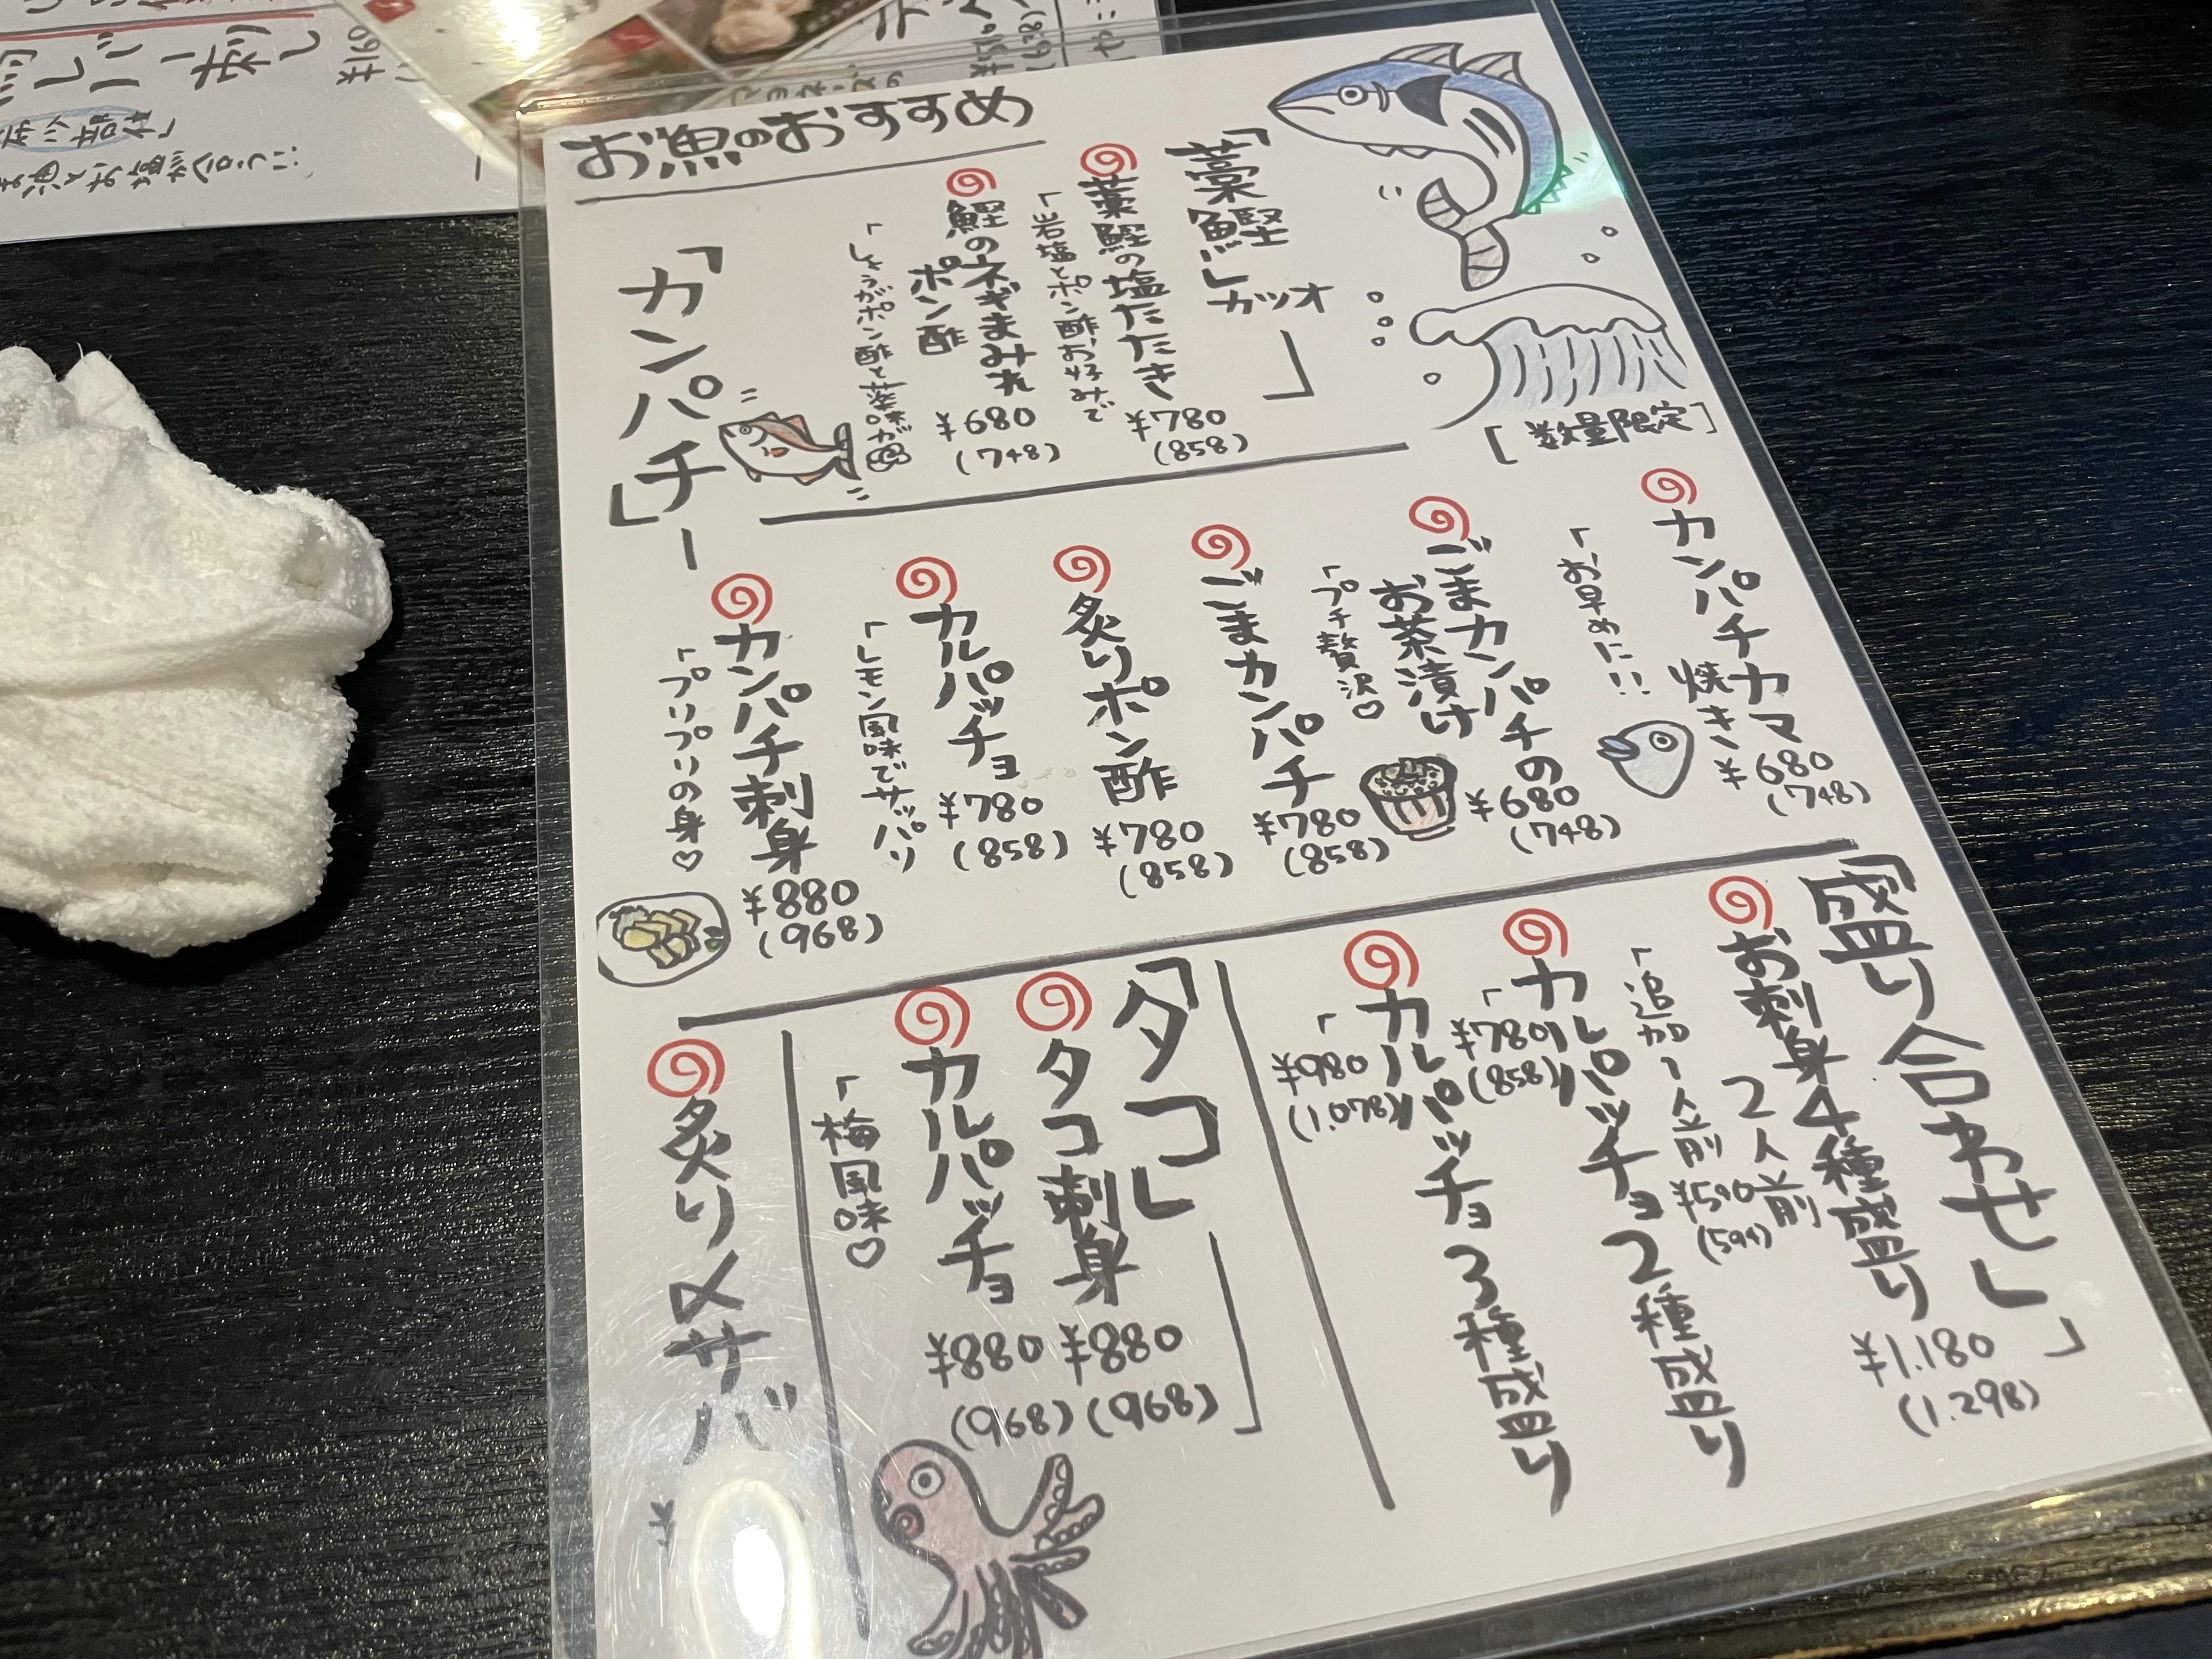 お魚のおすすめ
「藁鰹」
カツオ
藁鰹の塩たたき
「岩塩とポン酢お好みで
¥780
(858)
鰹のネギまみれ
ポン酢
¥680
(748)
「しょうがポン酢と薬味が
[数量限定]
「カンパチ」
カンパチカマ
焼き
¥680
(748)
「お早めに!!
ごまカンパチの
お茶漬け
¥680
(748)
「プチ贅沢♡
ごまカンパチ
¥780
(858)
炙りポン酢
¥780
(858)
カルパッチョ
¥780
(858)
「レモン風味でサッパリ
カンパチ刺身
¥880
(968)
「プリプリの身♡
「盛り合わせ」
お刺身4種盛り
2人前
¥1.180
(1.298)
「追加1人前
¥540
(594)
カルパッチョ2種盛り
「¥780
(858)
カルパッチョ3種盛り
「¥980
(1.078)
「タコ」
タコ刺身
¥880
(968)
カルパッチョ
¥880
(968)
「梅風味♡
炙り〆サバ
¥
レバー刺し
¥160